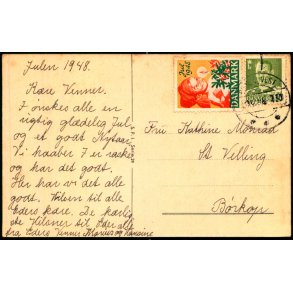 Julen 1948.
Kære Venner.
I ønskes alle en
rigtig glædelig Jul
og et godt Nytaar.
Vi haaber I er raske
og har det godt.
Her har vi det alle
godt. Hilsen til alle
Eders kære. De kærlig
ste Hilsner til Eder alle
fra Eders Venner Marius og
Jul
1948
DANMARK
Fru Kathine Monrad
St Velling
Børkop